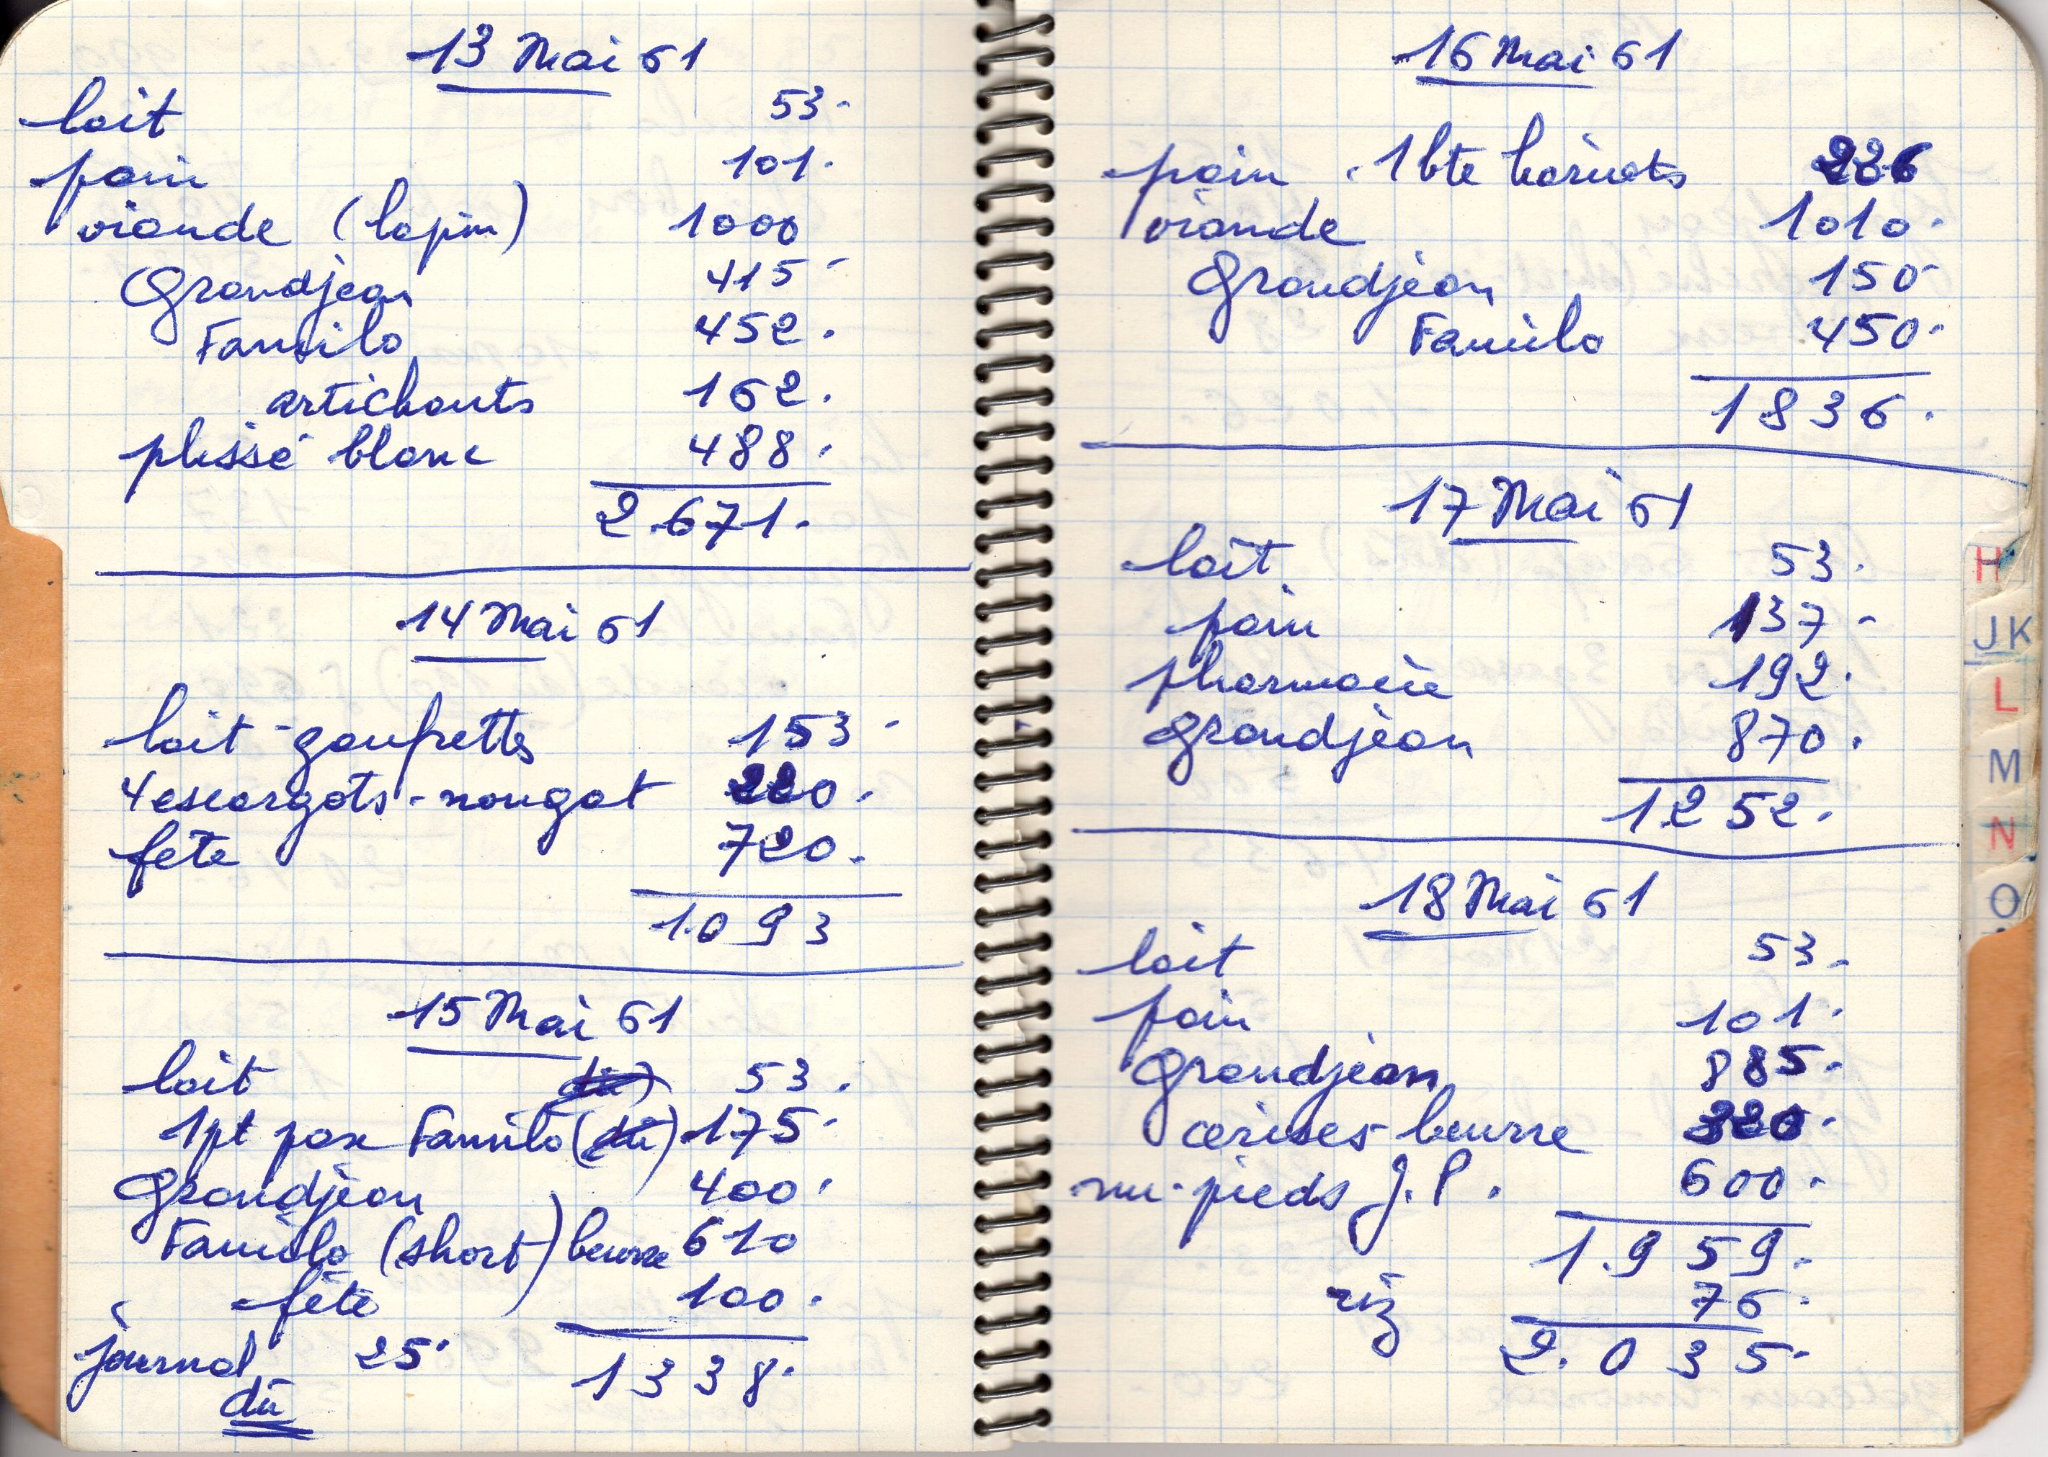 13 Mai 61
lait 53.
pain 101.
viande (lapin) 1000
Grandjean 415
Familo 452.
artichauts 162.
plissé blanc 488.
2.671.
14 Mai 61
lait - gaufrettes 153
4 escargots - nougat 220.
fête 720.
1.093
15 Mai 61
lait dû) 53.
1pt pax Familo (dû) 175.
Grandjean 400.
Familo (short) beurre 610
fête 100.
journal 25. 1338.
dû
16 Mai 61
pain . 1 bte haricots 226
viande 1010.
Grandjean 150
Familo 450.
1836.
17 Mai 61
lait 53.
pain 137
pharmacie 192.
grandjean 870.
1252.
18 Mai 61
lait 53
pain 101.
Grandjean 885.
cerises - beurre 320.
nu-pieds J.P. 600.
1.959.
riz 76.
2.035.
H
JK
L
M
N
O